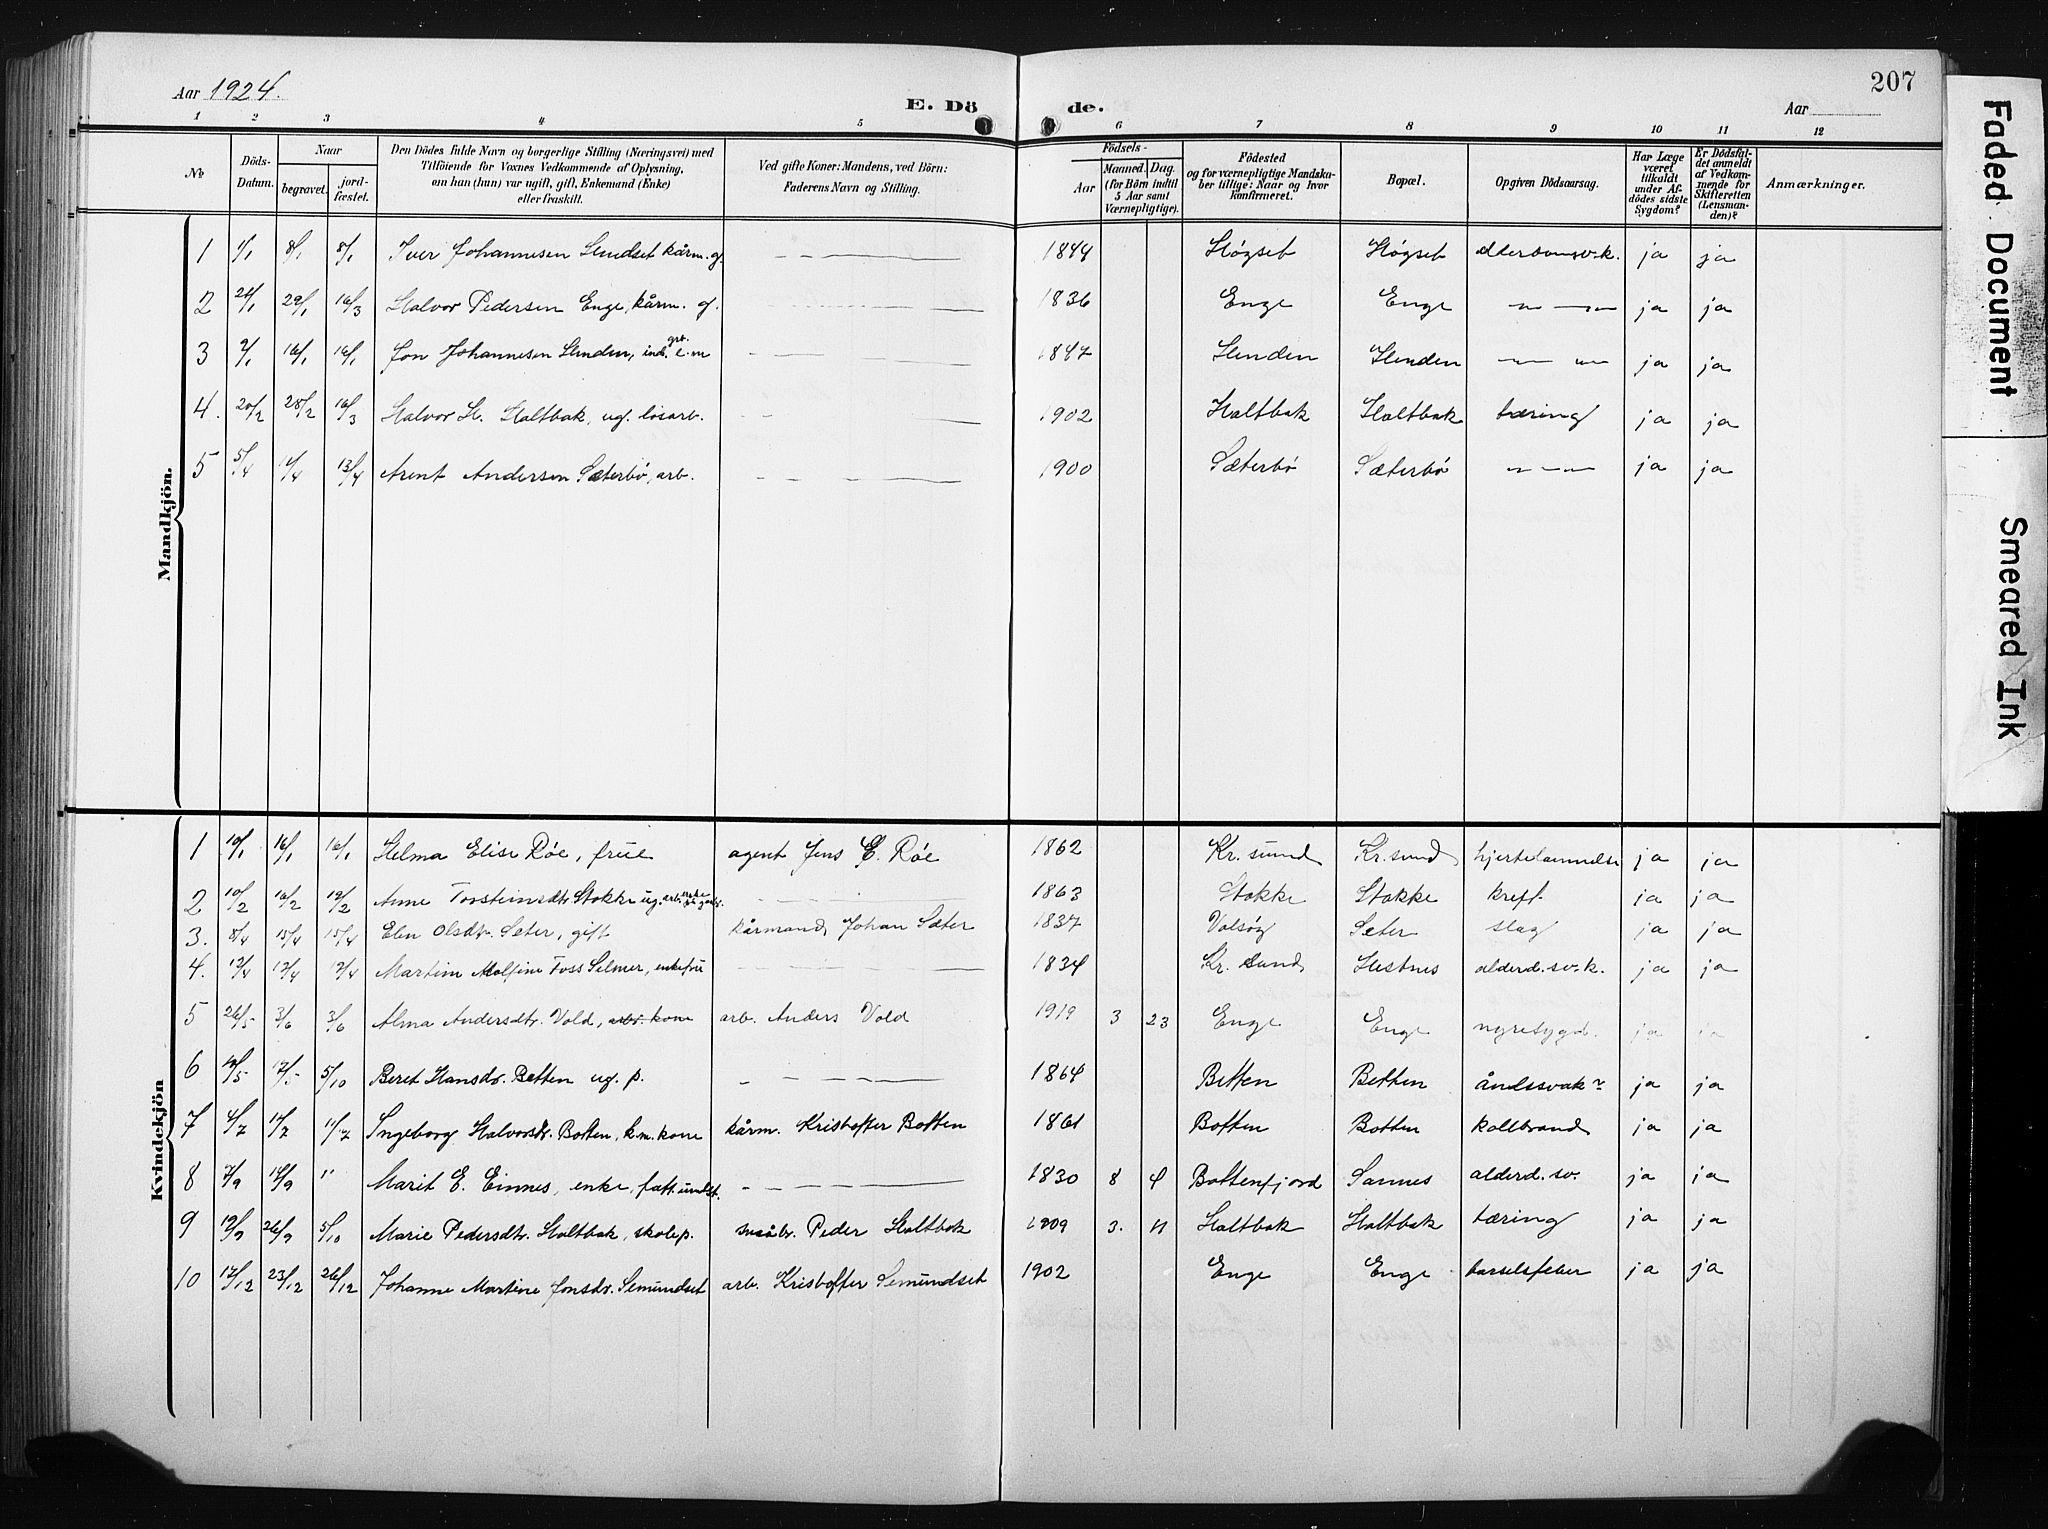 207
Aar 1924.
E. Dö de.
Aar
1 2 3 4 5 6 7 8 9 10 11 12
№
Döds-Datum.
Naar
begravet.
jord-fæstet.
Den Dödes fulde Navn og borgerlige Stilling (Næringsvei) med
Tilföiende for Voxnes Vedkommende af Oplysning,
om han (hun) var ugift, gift, Enkemand (Enke)
eller fraskilt.
Ved gifte Koner: Mandens, ved Börn:
Faderens Navn og Stilling.
Födsels-
Aar
Maaned. Dag.
(for Börn indtil
5 Aar samt
Værnepligtige).
Födested
og for værnepligtige Mandska-
ber tillige: Naar og hvor
konfirmeret.
Bopæl.
Opgiven Dödsaarsag.
Har Læge
været
tilkaldt
under Af-
dödes sidste
Sygdom?
Er Dödsfal-
det anmeldt
af Vedkom-
mende for
Skifteretten
(Lensman-
den)?
Anmærkninger.
Mandkjön.
1 8/1 8/1 Iver Johannesen kårm. g. 1844 Høgset Høgset ja ja
2 29/1 16/3 Halvor Pedersen Enge, kårm. g. 1836 Enge Enge ja ja
3 9/1 16/1 16/1 Jon Johannesen Henden, e.m 1847 Henden Henden ja ja
4. 20/2 28/2 16/3 Halvor H. Haltbak, ug. løsarb. 1902 Haltbak Haltbak tæring ja ja
5 5/4 13/4 Arent Andersen Sæterbø, arb. 1900 Sæterbø Sæterbø ja ja
Kvindekjön
1 10/1 16/1 16/1 Helma Elise Røe, frue agent Jens E. Røe 1862 Kr. sund Kr. sund hjertelammelse ja ja
2 10/2 16/2 19/2 Anne Torsteinsdtr. Stokke ug. 1863 Stokke Stokke kreft ja ja
3. 8/4 15/4 15/4 Elen Olsdtr. Sæter, gift kårmand Johan Sæter 1837 Valsøg Seter slag ja ja
4. Martine Toss Selmer, enkefru 1834 Kr. sund Hestnes alderd. sv.k. ja ja
5 26/5 3/6 3/6 Alma Andersdtr. Vold, arb. kone arb. Anders Vold 1919 3 23 Enge Enge nyresygd. ja ja
6 5/10 Beret Hansdr. Betten ug. p. 1864 Betten Betten åndssvak ja ja
7 11/7 Ingeborg Halvorsdr. Botten, k.m. kone kårm. Kristoffer Botten 1861 Botten Botten kollbrand ja ja
8 7/9 14/9 " Marit E. Einnes, enke, fatt. undst. 1830 8 4 Bottenfjord Sannes alderd. sv. ja ja
9 19/9 26/9 5/10 Marie Pedersdtr. Haltbak, skolep. småbr. Peder Haltbak 1909 3. 11 Haltbak Haltbak tæring ja ja
10 17/12 23/12 26/12 Johanne Martine Jonsdr. Semundset arb. Kristoffer Semundset 1902 Enge Enge barselsfeber ja ja
Faded Document
Smeared Ink